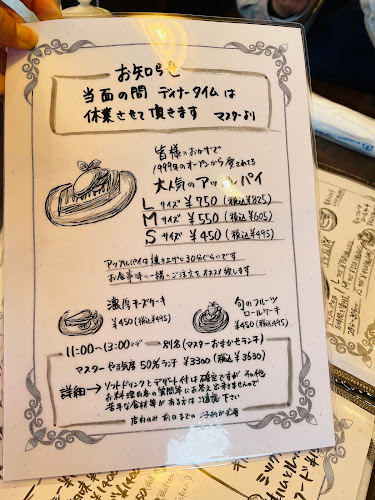 お知らせ
当面の間 ディナータイムは
休業させて頂きます マスターより
皆様のおかげで
1999年のオープンから愛されてる
大人気のアップルパイ
L サイズ ¥750 (税込¥825)
M サイズ ¥550 (税込¥605)
S サイズ ¥450 (税込¥495)
アップルパイは焼き上がり30分ぐらいです
お食事時一緒のご注文をオススメ致します
濃厚チーズケーキ
¥450 (税込¥495)
旬のフルーツ
ロールケーキ
¥450 (税込¥495)
11:00〜13:00 別名(マスターおまかせランチ)
マスターやる気度50%ランチ ¥3300 (税込¥3630)
詳細→ソフトドリンクとデザート付は確定ですが その他
お料理内容の質問等にお答え出来ませんので
苦手な食材等がある方はご遠慮下さい
店内のみ 前日までのご予約が必要